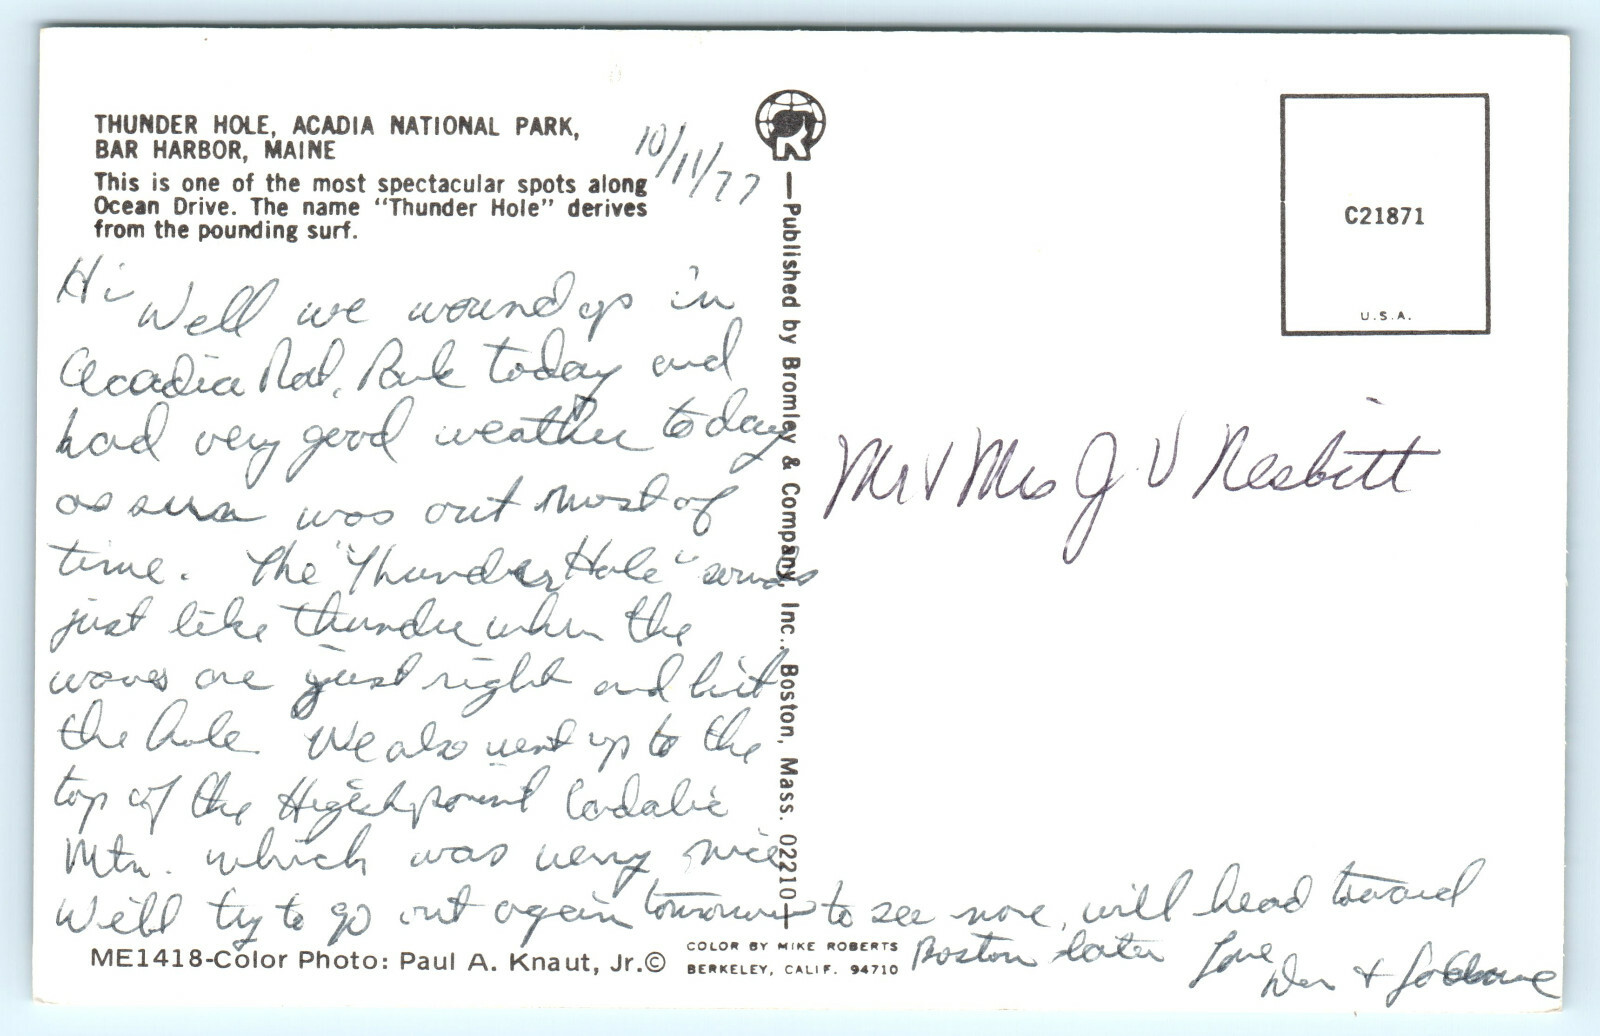 THUNDER HOLE, ACADIA NATIONAL PARK,
BAR HARBOR, MAINE
This is one of the most spectacular spots along
Ocean Drive. The name "Thunder Hole" derives
from the pounding surf.
10/11/77
Hi
Well we wound up in
Acadia Nat. Park today and
had very good weather today
as sun was out most of
time. The "Thunder Hole" sounds
just like thunder when the
waves are just right and hit
the hole. We also went up to the
top of the Highpoint
Mtn. which was very nice
We'll try to go out again tomorrow to see more, will head toward
Boston later Love
+
Mr & Mrs J V Nesbitt
Published by Bromley & Company, Inc., Boston, Mass. 02210
C21871
U.S.A.
ME1418-Color Photo: Paul A. Knaut, Jr.©
COLOR BY MIKE ROBERTS
BERKELEY, CALIF. 94710